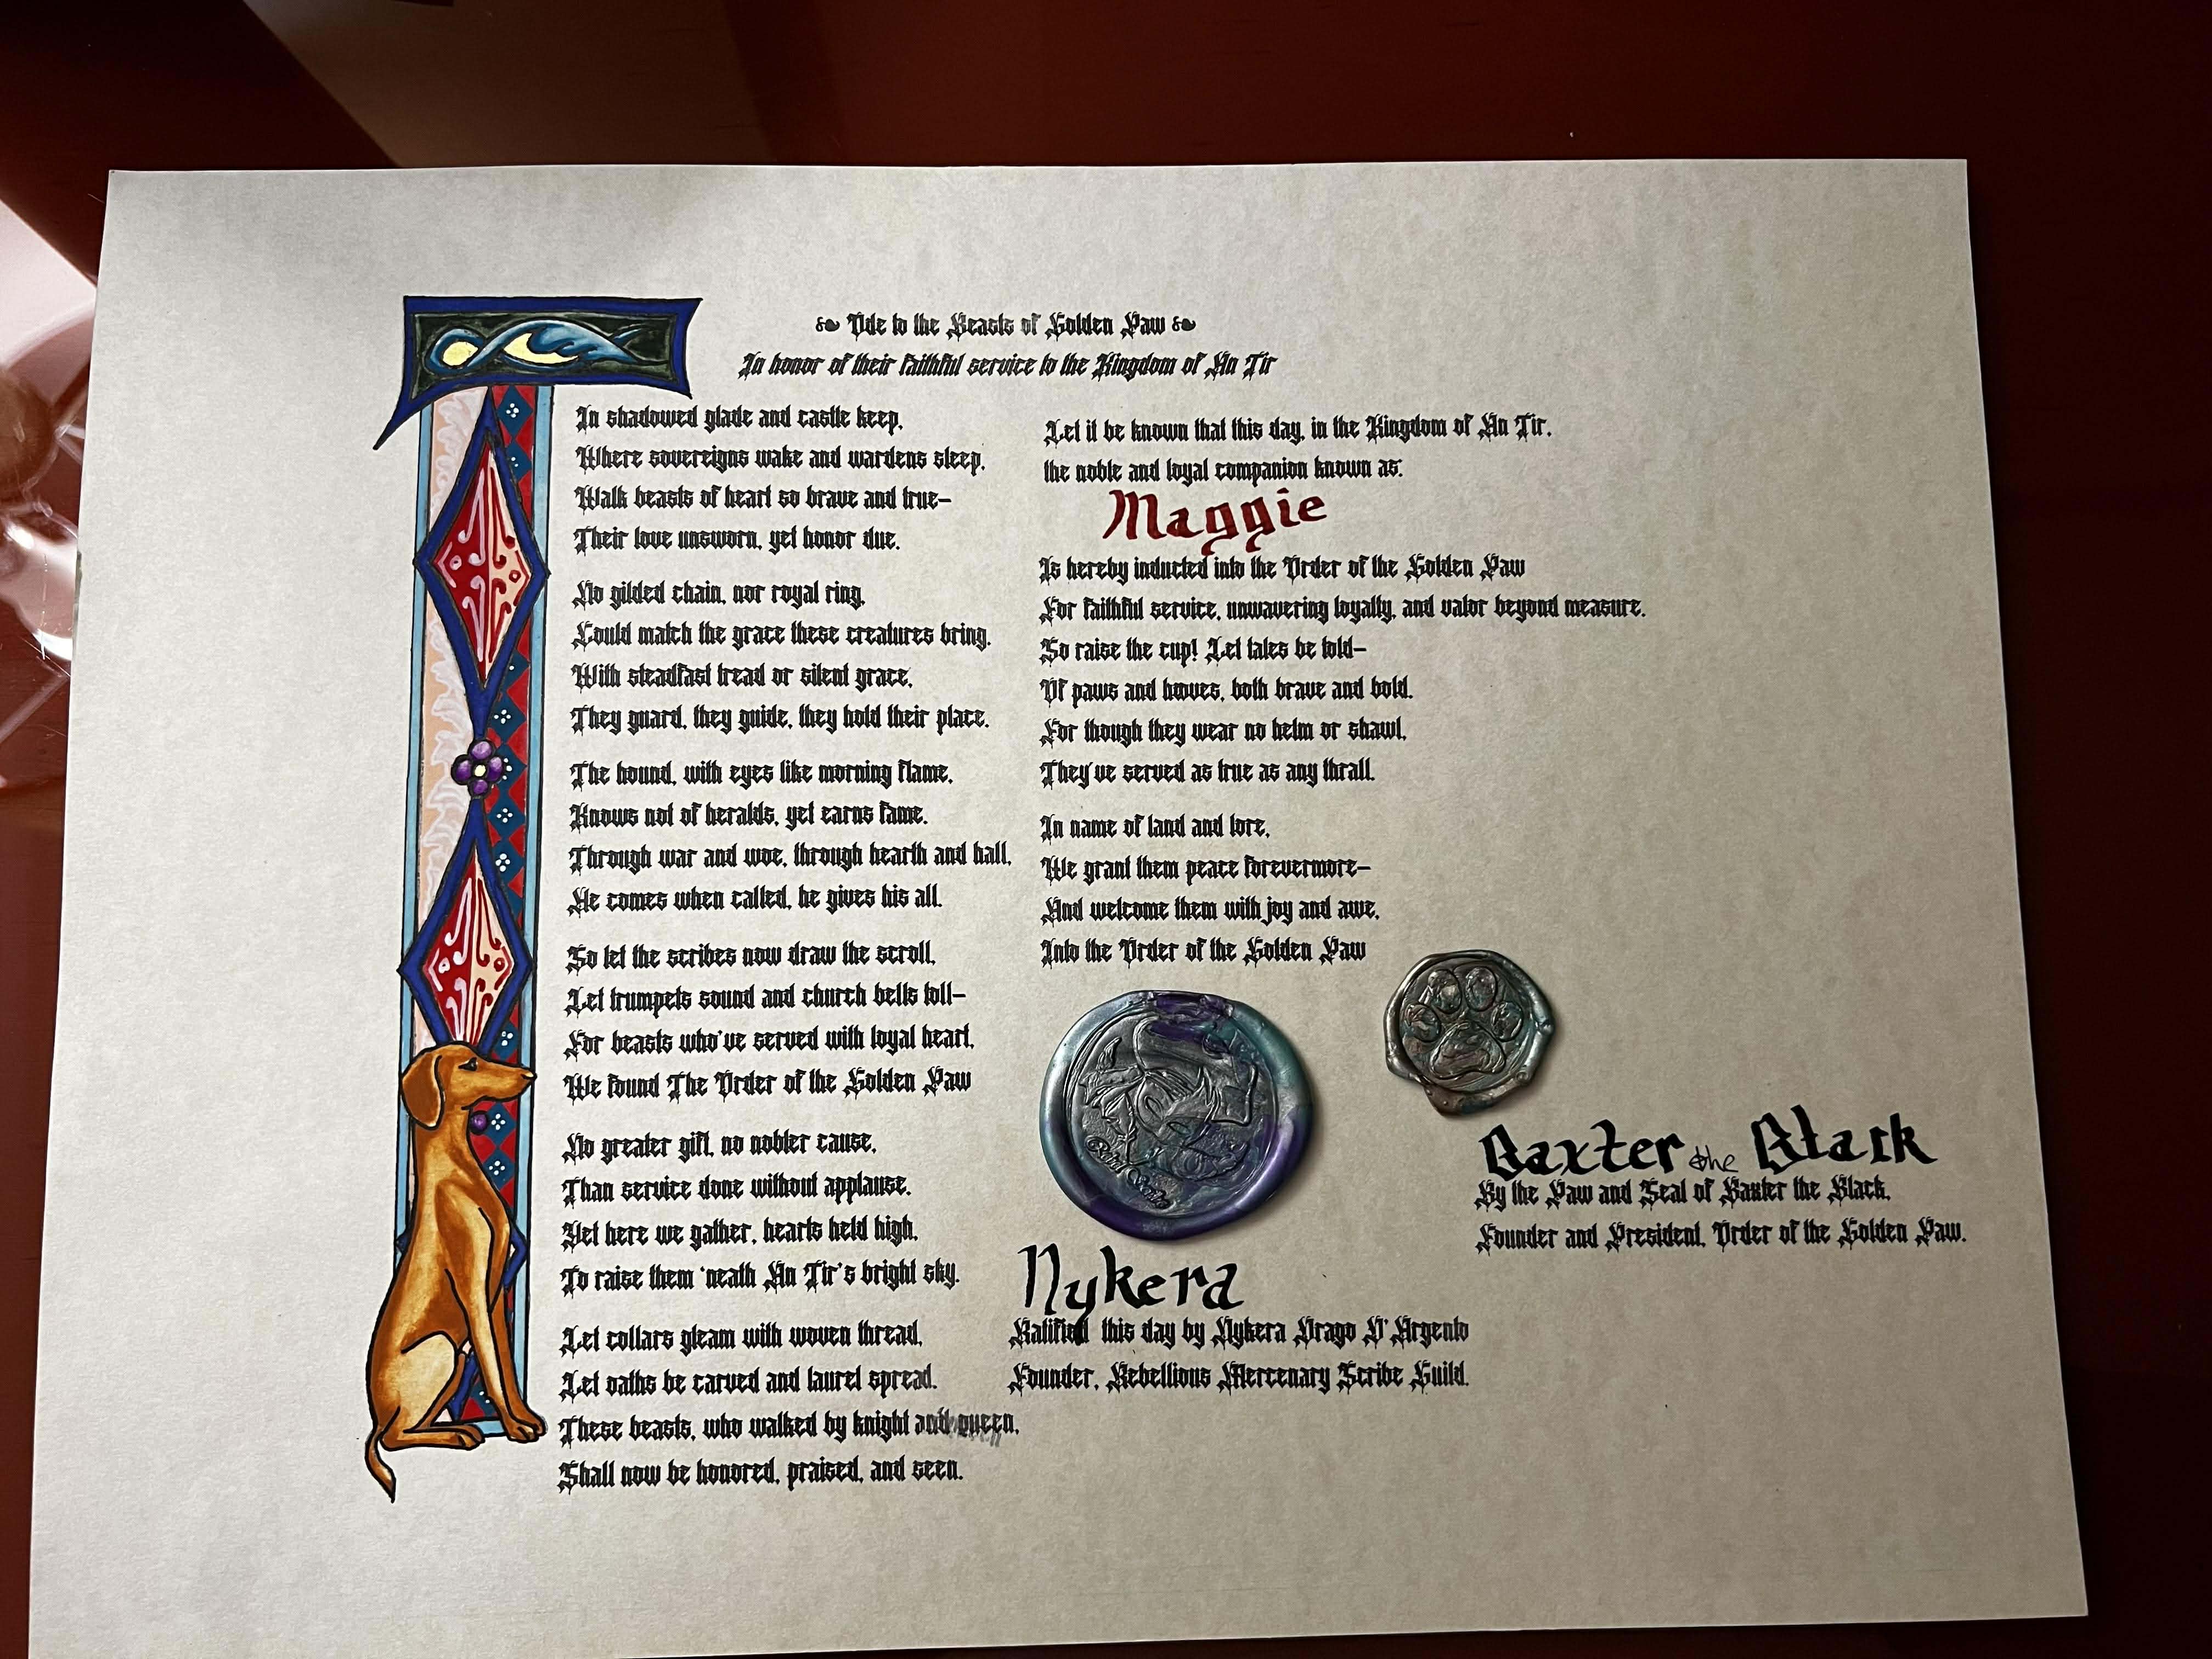 Ode to the Beasts of Golden Paw
In honor of their faithful service to the Kingdom of An Tir
In shadowed glade and castle keep,
Where sovereigns wake and wardens sleep,
Walk beasts of heart so brave and true—
Their love unsworn, yet honor due.
No gilded chain, nor royal ring,
Could match the grace these creatures bring.
With steadfast tread or silent grace,
They guard, they guide, they hold their place.
The hound, with eyes like morning flame,
Knows not of heralds, yet earns fame.
Through war and woe, through hearth and hall,
He comes when called, he gives his all.
So let the scribes now draw the scroll,
Let trumpets sound and church bells toll—
For beasts who've served with loyal heart,
We found The Order of the Golden Paw
No greater gift, no nobler cause,
Than service done without applause.
Yet here we gather, hearts held high,
To raise them 'neath An Tir's bright sky.
Let collars gleam with woven thread,
Let oaths be carved and laurel spread.
These beasts, who walked by knight and queen,
Shall now be honored, praised, and seen.
Let it be known that this day, in the Kingdom of An Tir,
the noble and loyal companion known as:
Maggie
Is hereby inducted into the Order of the Golden Paw
For faithful service, unwavering loyalty, and valor beyond measure.
So raise the cup! Let tales be told—
Of paws and hooves, both brave and bold.
For though they wear no helm or shawl,
They've served as true as any thrall.
In name of land and lore,
We grant them peace forevermore—
And welcome them with joy and awe,
Into the Order of the Golden Paw
Nykera
Ratified this day by Nykera Drago D'Argento
Founder, Rebellious Mercenary Scribe Guild.
Baxter the Black
By the Paw and Seal of Baxter the Black,
Founder and President, Order of the Golden Paw.